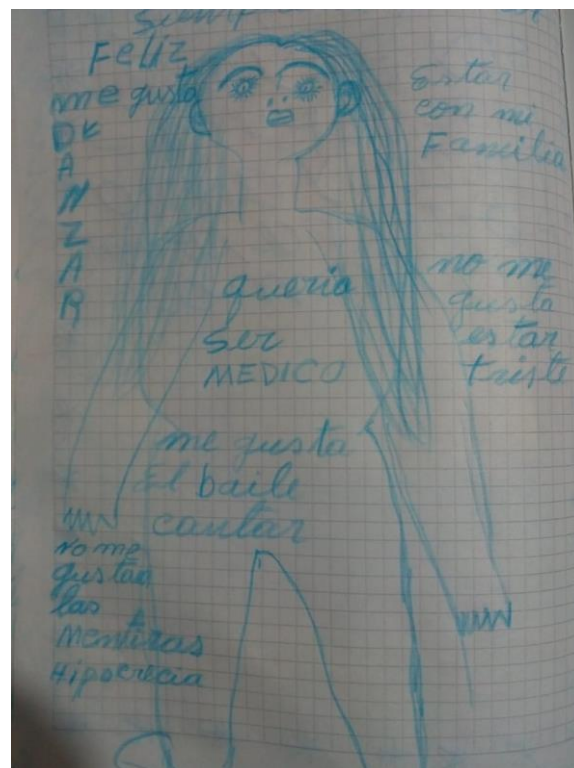 Siempre
Feliz
me gusta
DANZAR
Estar
con mi
Familia
queria
ser
MEDICO
no me
gusta
estar
triste
me gusta
El baile
cantar
No me
gustan
las
Mentiras
Hipocrecia